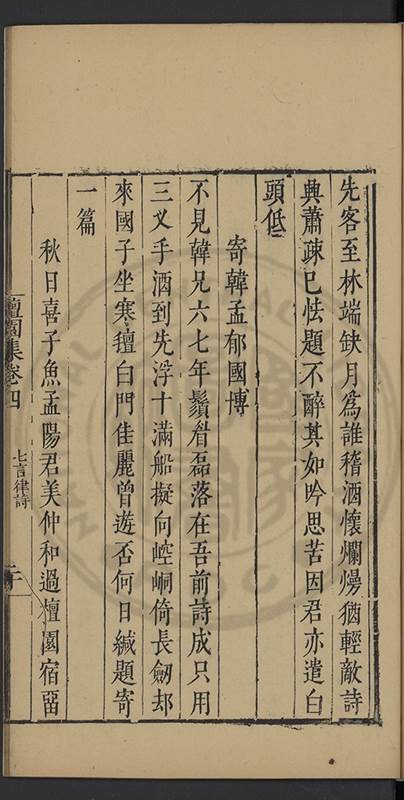 先客至林端缺月為誰稽酒懷爛熳猶輕敵詩
興蕭疎已怯題不醉其如吟思苦因君亦遣白
頭低
寄韓孟郁國博
不見韓兄六七年鬚眉磊落在吾前詩成只用
三叉手酒到先浮十滿船擬向崆峒倚長劒却
來國子坐寒氊白門佳麗曾遊否何日緘題寄
一篇
秋日喜子魚孟陽君美仲和過檀園宿留
檀園集卷四
七言律詩